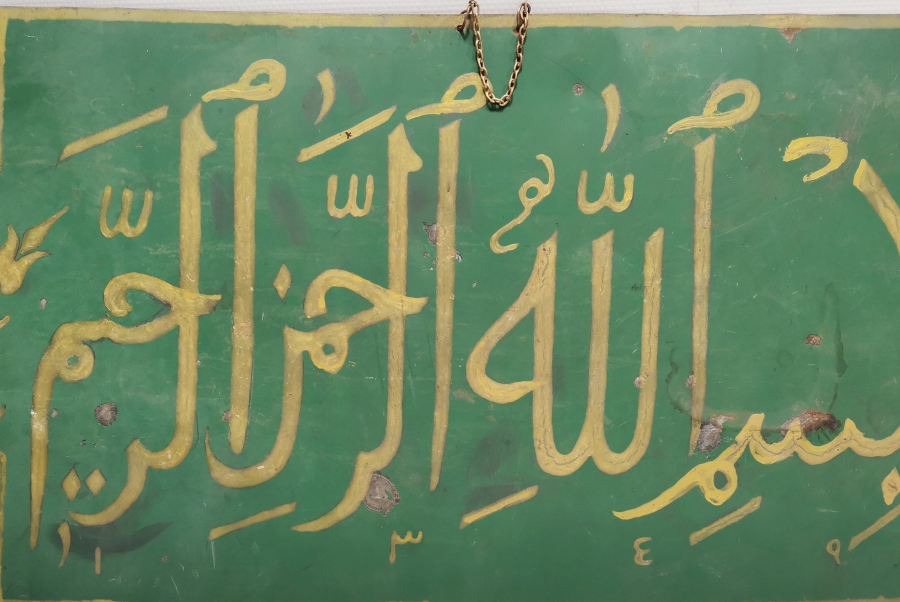 بسم الله الرحمن الرحيم
١٣٤٩